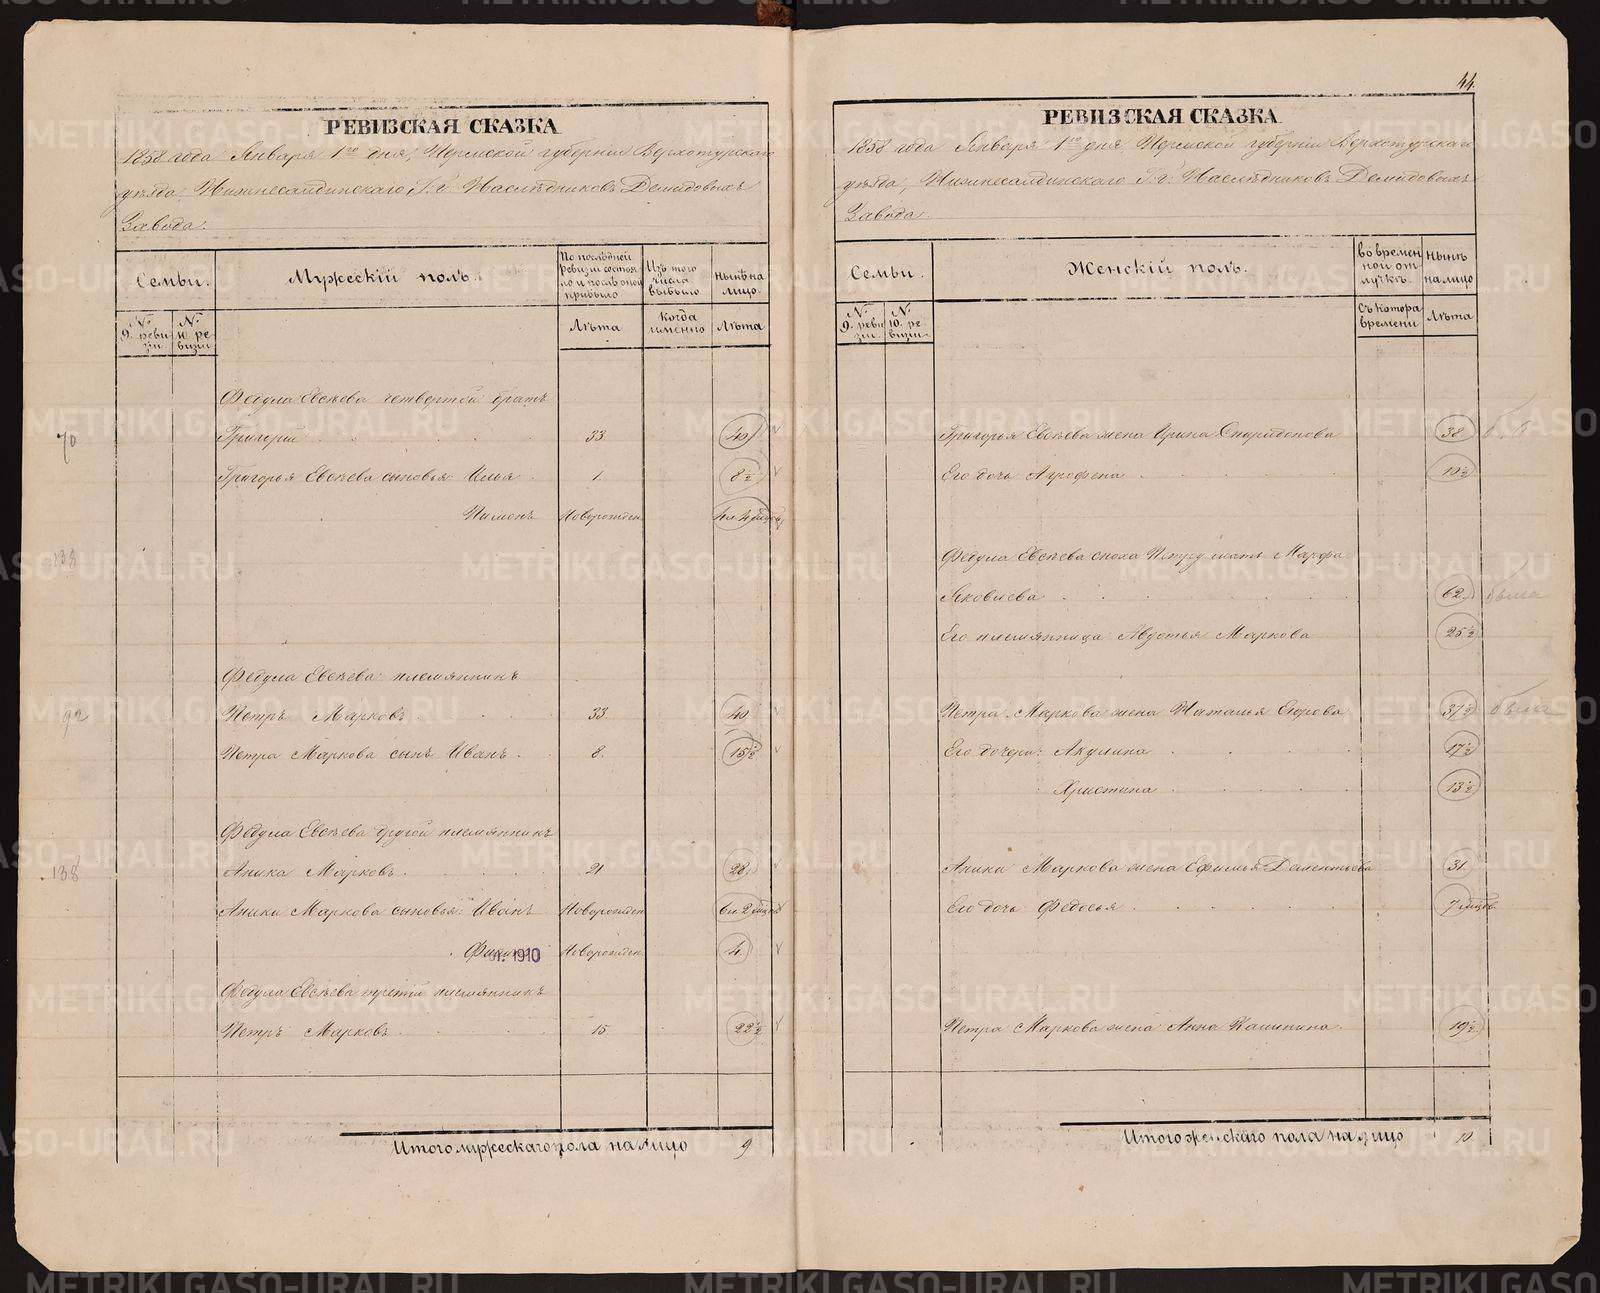 44.
РЕВИЗСКАЯ СКАЗКА
1858 года Января 1го дня, Пермской губернии Верхотурскаго
уѣзда, Нижнесалдинскаго Г.г. Наслѣдниковъ Демидовыхъ
Завода.
Семьи.
Мужескій полъ.
По послѣдней ревизіи состояло и послѣ оной прибыло
Изъ того числа выбыло
Нынѣ на лицо.
№ 9. ревизіи
№ 10 ревизіи
Лѣта
Когда именно
Лѣта
Федула Евсѣева четвертой братъ
70 Григорій 33 40
Григорья Евсѣева сыновья: Илья 1. 8½
Пименъ Новорожден.
138
Федула Евсѣева племянникъ
92 Петръ Марковъ 33. 40
Петра Маркова сынъ Иванъ. 8. 15½
Федула Евсѣева другой племянникъ
138 Аника Марковъ. 21 28.
Аники Маркова сыновья: Иванъ Новорожден
Новорожден. 4.
1910
Федула Евсѣева третій племянникъ
Петръ Марковъ 15 22½
Итого мужескаго пола на лицо 9
РЕВИЗСКАЯ СКАЗКА
1858 года Января 1го дня, Пермской губерніи Верхотурскаго
уѣзда, Нижнесалдинскаго Г.г. Наслѣдниковъ Демидовыхъ
Завода.
Семьи.
Женскій полъ.
Во временной отлучкѣ.
Нынѣ на лицо
№ 9. ревизіи
№ 10. ревизіи
Съ котора времени
Лѣта
Григорья Евсѣева жена Ирина Спиридонова 38
Его дочь Агрофена 10½
Федула Евсѣева сноха Петру мать Марфа
Яковлева 62.
Его племянница Авдотья Маркова 25½
Петра Маркова жена Наталья 37½
Его дочери: Акулина 17½
Христина 13½
Аники Маркова жена Ефимья Дементьева 31.
Его дочь Федосья 7 мѣсцов.
Петра Маркова жена Анна Калинина 19½
Итого женскаго пола на лицо 10
METRIKI.GASO-URAL.RU